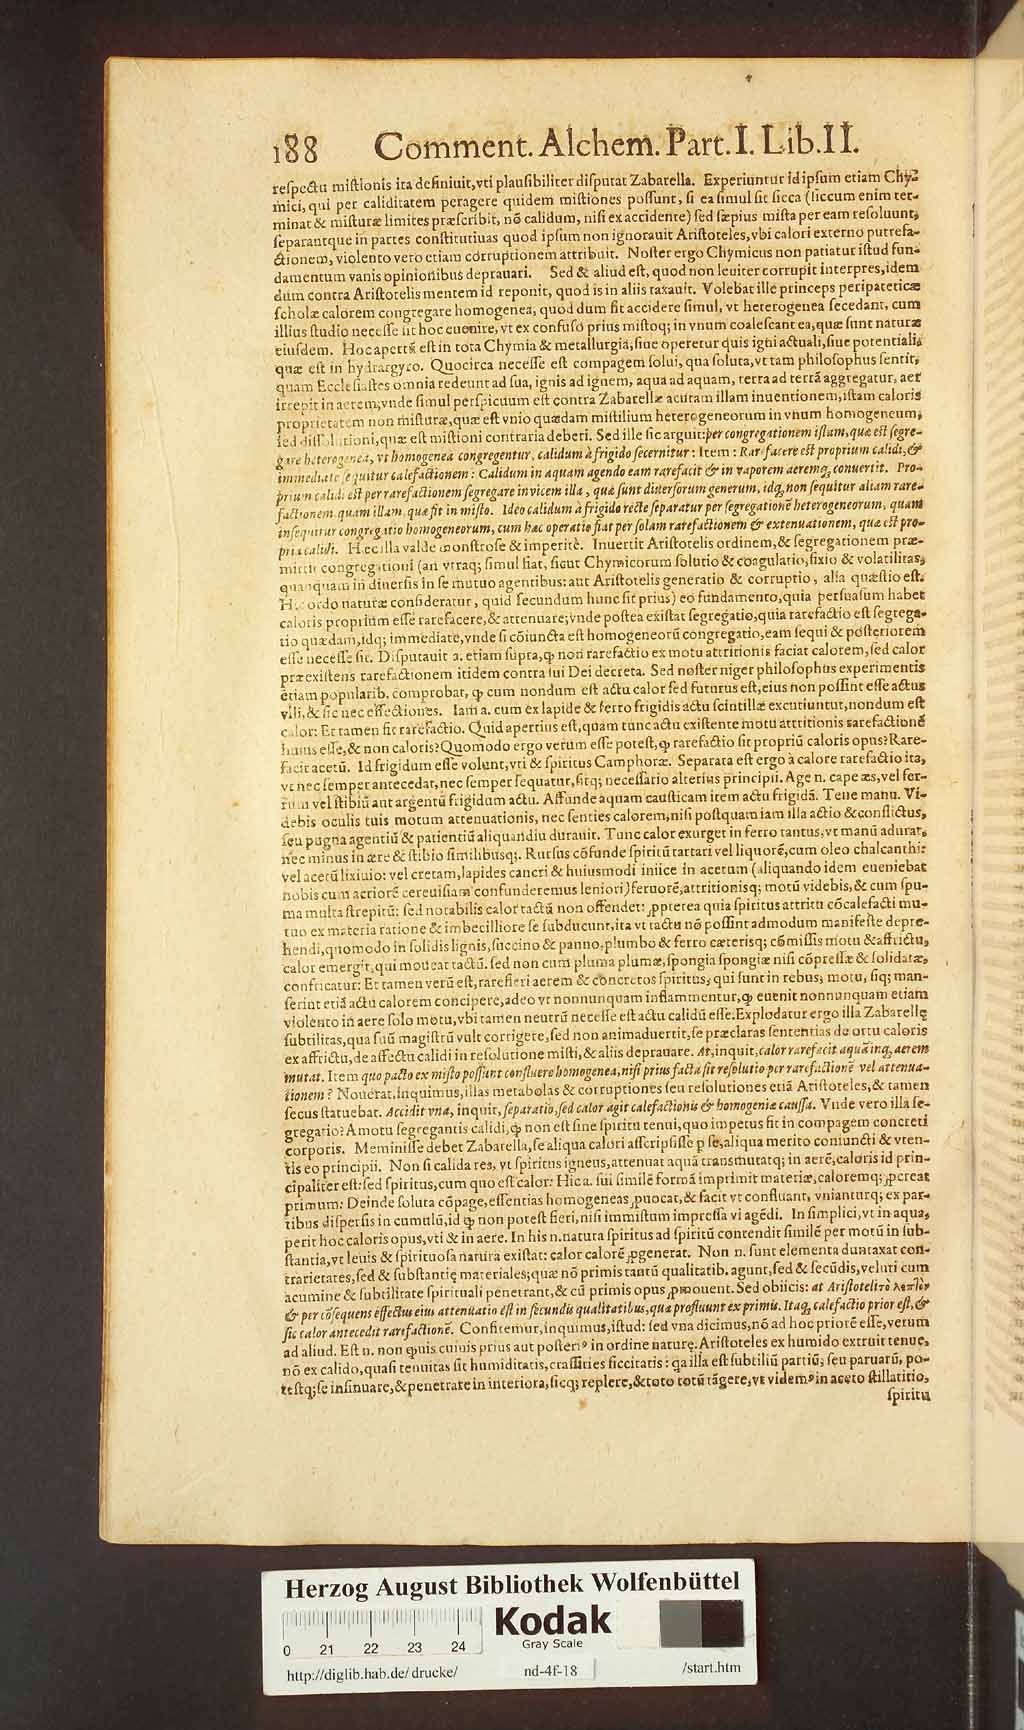 188 Comment. Alchem. Part. I. Lib. II.
respectu mistionis ita definiuit, vti plausibiliter disputat Zabarella. Experiuntur id ipsum etiam Chy-
mici, qui per caliditatem peragere quidem mistiones possunt, si ea simul sit sicca (siccum enim ter-
minat & misturæ limites præscribit, nō calidum, nisi ex accidente) sed sæpius mista per eam resoluunt,
separantque in partes constitutiuas quod ipsum non ignorauit Aristoteles, vbi calori externo putrefa-
ctionem, violento vero etiam corruptionem attribuit. Noster ergo Chymicus non patiatur istud fun-
damentum vanis opinionibus deprauari. Sed & aliud est, quod non leuiter corrupit interpres, idem
dum contra Aristotelis mentem id reponit, quod is in aliis taxauit. Volebat ille princeps peripateticæ
scholæ calorem congregare homogenea, quod dum fit accidere simul, vt heterogenea secedant, cum
illius studio necesse sit hoc euenire, vt ex confuso prius mistoq; in vnum coalescant ea, quæ sunt naturæ
eiusdem. Hoc apertū est in tota Chymia & metallurgia, siue operetur quis igni actuali, siue potentiali,
quæ est in hydrargyro. Quocirca necesse est compagem solui, qua soluta, vt tam philosophus sentit,
quam Ecclesiastes omnia redeunt ad sua, ignis ad ignem, aqua ad aquam, terra ad terrā aggregatur, aer
irrepit in aerem, vnde simul perspicuum est contra Zabarellæ acutam illam inuentionem, istam caloris
proprietatem non misturæ, quæ est vnio quædam mistilium heterogeneorum in vnum homogeneum,
sed dissolutioni, quæ est mistioni contraria deberi. Sed ille sic arguit: per congregationem istam, quæ est segre-
gare heterogenea, vt homogenea congregentur, calidum à frigido secernitur: Item: Rarefacere est proprium calidi, &
immediate sequitur calefactionem: Calidum in aquam agendo eam rarefacit & in vaporem aeremq; conuertit. Pro-
prium calidi est per rarefactionem segregare inuicem illa, quæ sunt diuersorum generum, idq; non sequitur aliam rare-
factionem quam illam, quæ fit in misto. Ideo calidum à frigido recte separatur per segregationē heterogeneorum, quam
insequitur congregatio homogeneorum, cum hæc operatio fiat per solam rarefactionem & extenuationem, quæ est pro-
pria calidi. Hæc illa valde monstrose & imperitè. Inuertit Aristotelis ordinem, & segregationem præ-
mittit congregationi (an vtraq; simul fiat, sicut Chymicorum solutio & coagulatio, fixio & volatilitas,
quanquam in diuersis in se mutuo agentibus: aut Aristotelis generatio & corruptio, alia quæstio est.
Hic ordo naturæ consideratur, quid secundum hunc sit prius) eo fundamento, quia persuasum habet
caloris proprium esse rarefacere, & attenuare; vnde postea existat segregatio, quia rarefactio est segrega-
tio quædam, idq; immediate, vnde si cōiuncta est homogeneorū congregatio, eam sequi & posteriorem
esse necesse sit. Disputauit a. etiam supra, q̨ non rarefactio ex motu attritionis faciat calorem, sed calor
præexistens rarefactionem itidem contra sui Dei decreta. Sed noster niger philosophus experimentis
etiam popularib. comprobat, q̨ cum nondum est actu calor sed futurus est, eius non possint esse actus
vlli, & sic nec effectiones. Iam a. cum ex lapide & ferro frigidis actu scintillæ excutiuntur, nondum est
calor: Et tamen fit rarefactio. Quid apertius est, quam tunc actu existente motu attritionis rarefactionē
huius esse, & non caloris? Quomodo ergo verum esse potest, q̨ rarefactio sit propriū caloris opus? Rare-
facit acetū. Id frigidum esse volunt, vti & spiritus Camphoræ. Separata est ergo à calore rarefactio ita,
vt nec semper antecedat, nec semper sequatur, sitq; necessario alterius principii. Age n. cape æs, vel fer-
rum vel stibiū aut argentū frigidum actu. Affunde aquam causticam item actu frigidā. Tene manu. Vi-
debis oculis tuis motum attenuationis, nec senties calorem, nisi postquam iam illa actio & conflictus,
seu pugna agentiū & patientiū aliquandiu durauit. Tunc calor exurget in ferro tantus, vt manū adurat,
nec minus in ære & stibio similibusq;. Rursus cōfunde spiritū tartari vel liquorē, cum oleo chalcanthi:
vel acetū lixiuio: vel cretam, lapides cancri & huiusmodi iniice in acetum (aliquando idem eueniebat
nobis cum acriorē cereuisiam confunderemus leniori) feruorē, attritionisq; motū videbis, & cum spu-
ma multa strepitū: sed notabilis calor tactū non offendet: ꝓpterea quia spiritus attritu cōcalefacti mu-
tuo ex materia ratione & imbecilliore se subducunt, ita vt tactu nō possint admodum manifeste depre-
hendi, quomodo in solidis lignis, succino & panno, plumbo & ferro cæterisq; cōmissis motu & affrictu,
calor emergit, qui moueat tactū. sed non cum pluma plumæ, spongia spongiæ nisi cōpressæ & solidatæ,
confricatur: Et tamen verū est, rarefieri aerem & concretos spiritus, qui sunt in rebus, motu, siq; man-
serint etiā actu calorem concipere, adeo vt nonnunquam inflammentur, q̨ euenit nonnunquam etiam
violento in aere solo motu, vbi tamen neutrū necesse est actu calidū esse. Explodatur ergo illa Zabarellę
subtilitas, qua suū magistrū vult corrigere, sed non animaduertit, se præclaras sententias de ortu caloris
ex affrictu, de affectu calidi in resolutione misti, & aliis deprauare. At, inquit, calor rarefacit aquā inq; aerem
mutat. Item quo pacto ex misto possunt confluere homogenea, nisi prius facta sit resolutio per rarefactionē vel attenua-
tionem? Nouerat, inquimus, illas metabolas & corruptiones seu resolutiones etiā Aristoteles, & tamen
secus statuebat. Accidit vna, inquit, separatio, sed calor agit calefactionis & homogeniæ caussa. Vnde vero illa se-
gregatio? A motu segregantis calidi, q̨ non est sine spiritu tenui, quo impetus fit in compagem concreti
corporis. Meminisse debet Zabarella, se aliqua calori asscripsisse p se, aliqua merito coniuncti & vten-
tis eo principii. Non si calida res, vt spiritus igneus, attenuat aquā transmutatq; in aerē, caloris id prin-
cipaliter est: sed spiritus, cum quo est calor: Hic a. sui similē formā imprimit materiæ, caloremq; ꝓcreat
primum: Deinde soluta cōpage, essentias homogeneas ꝓuocat, & facit vt confluant, vnianturq; ex par-
tibus dispersis in cumulū, id q̨ non potest fieri, nisi immistum impressa vi agēdi. In simplici, vt in aqua,
perit hoc caloris opus, vti & in aere. In his n. natura spiritus ad spiritū contendit similē per motū in sub-
stantia, vt leuis & spirituosa natura existat: calor calorē ꝓgenerat. Non n. sunt elementa duntaxat con-
trarietates, sed & substantię materiales; quæ nō primis tantū qualitatib. agunt, sed & secūdis, veluti cum
acumine & subtilitate spirituali penetrant, & cū primis opus ꝓmouent. Sed obiicis: at Aristoteli τὸ λεπτὸν
& per cōsequens effectus eius attenuatio est in secundis qualitatibus, quæ profluunt ex primis. Itaq; calefactio prior est, &
sic calor antecedit rarefactionē. Confitemur, inquimus, istud: sed vna dicimus, nō ad hoc priorē esse, verum
ad aliud. Est n. non quis cuiuis prius aut posterꝰ in ordine naturę. Aristoteles ex humido extruit tenue,
nō ex calido, quasi tenuitas sit humiditatis, crassities siccitatis: q̨a illa est subtiliū partiū, seu paruarū, po-
testq; se insinuare, & penetrare in interiora, sicq; replere, & toto totū tāgere, vt videmꝰ in aceto stillatitio,
spiritu
Herzog August Bibliothek Wolfenbüttel
Kodak
Gray Scale
0 21 22 23 24
http://diglib.hab.de/drucke/ nd-4f-18 /start.htm